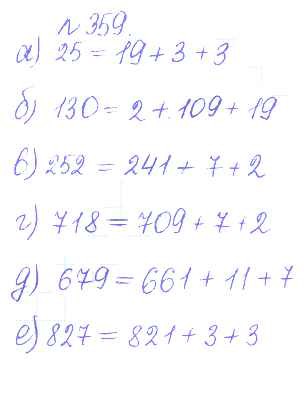 № 359.
а) 25 = 19 + 3 + 3
б) 130 = 2 + 109 + 19
в) 252 = 241 + 7 + 2
г) 718 = 709 + 7 + 2
д) 679 = 661 + 11 + 7
е) 827 = 821 + 3 + 3